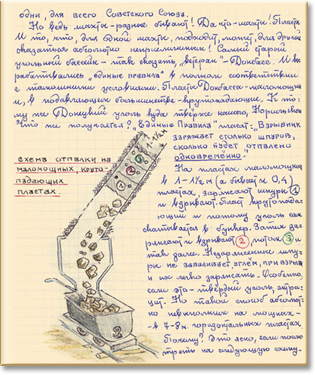 одни, для всего Советского Союза.
Но ведь шахты - разные бывают! Да что - шахты! Пласты!
И то, что для одной шахты, подходит, может, для другой
оказаться абсолютно неприемлемым! Самый старый
угольный бассейн - так сказать, ветеран - Донбасс. И вы
рабатывались „единые правила" в полном соответствии
с тамошними условиями. Пласты Донбасса - маломощные
и, в подавляющем большинстве - крутопадающие. К то
му же Донецкий уголь куда твёрже нашего, Норильского
Что же получается? „Единые Правила" гласят: Взрывник
заряжает столько шпуров,
сколько будет отпалено
одновременно.
схема отпалки на
маломощных, круто-
падающих
пластах
1-1½ м
На пластах маломощных
в 1-1½ м (а бывает и 0,4)
пластах, заряжают шпуры 1
и взрывают. Пласт крутопадаю
ющий и потому уголь сам
скатывается в бункер. Затем за
ряжают и взрывают 2, потом 3 и
так далее. Незаряженные шпу
ры не засыпает углём, при взрыве
и их легко заряжать. Особенно,
если это - твёрдый уголь, антра-
цит. Но такой способ абсолют
но неприменим на мощных -
- в 7-8 м горизонтальных пластах
Почему? Это ясно, если посмо
треть на следующую схему.